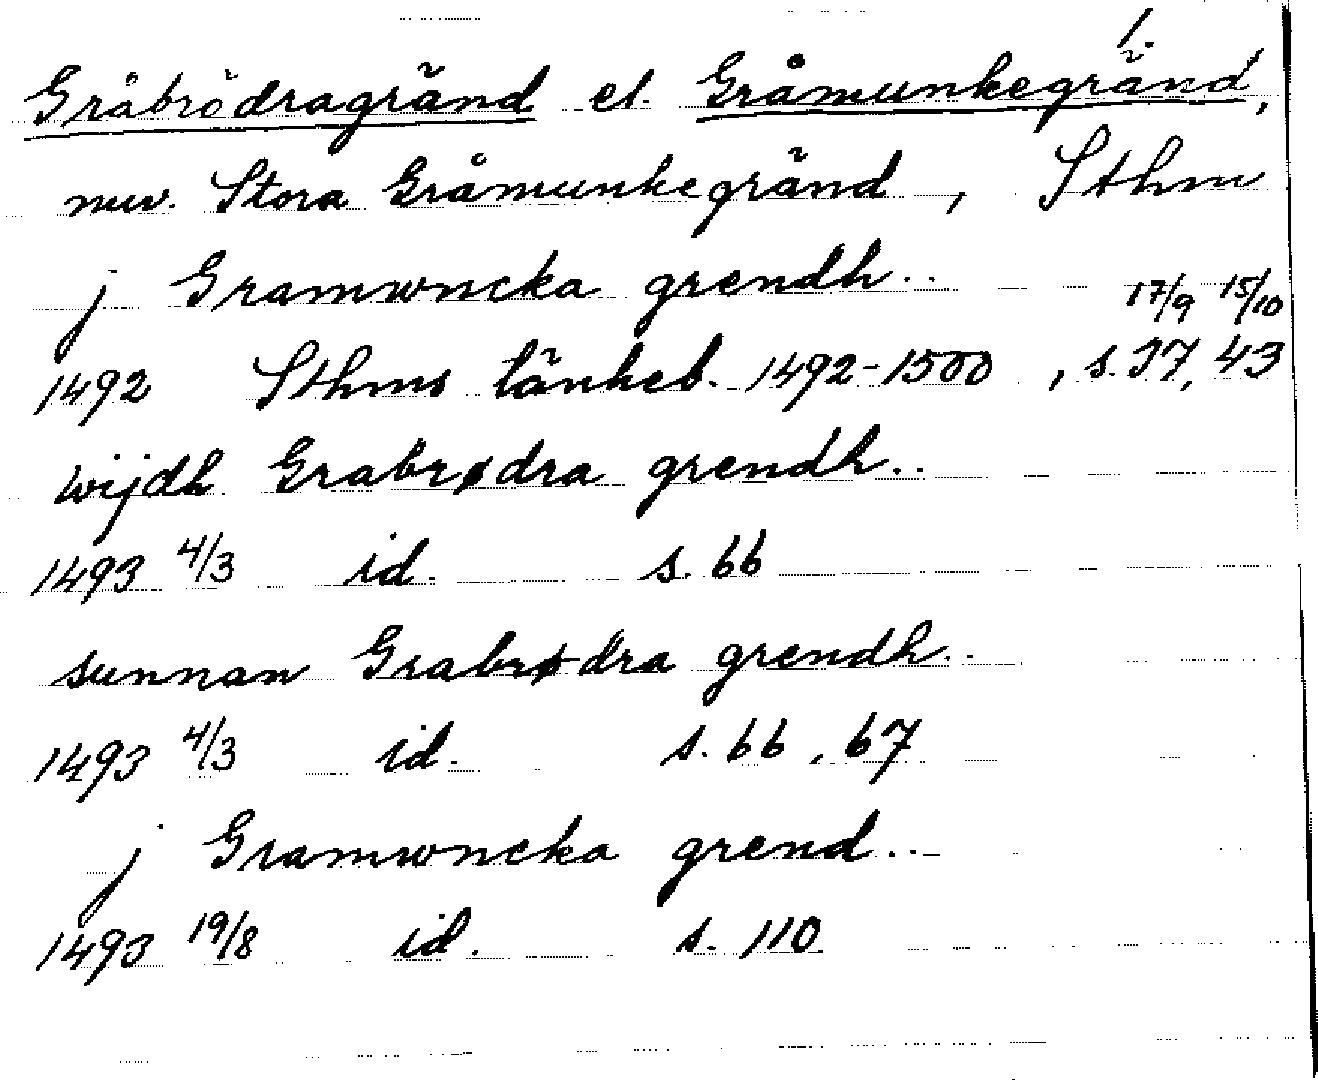 1.
Gråbrödragränd el. Gråmunkegränd,
nuv. Stora Gråmunkegränd, Sthm
j Gramwncka grendh..
17/9 15/10
1492 Sthms tänkeb. 1492-1500, s. 37, 43
wijdh Grabrødra grendh..
1493 4/3 id. s. 66
sunnan Grabrødra grendh..
1493 4/3 id. s. 66, 67
j Gramwncka grend..
1493 19/8 id. s. 110